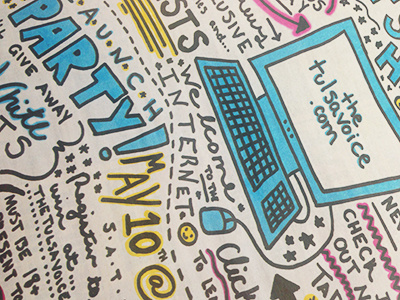 LAUNCH
PARTY!
GIVE AWAY
White
TS
MAY 10TH @
SAT.
Register to
win at
THETULSAVOICE
MUST BE 18
PRESENT TO
STS
and...
we welcome
TO THE
INTERNET
the
tulsavoice
.com
Click
TO LE
NE
CHECK
OUT
TA